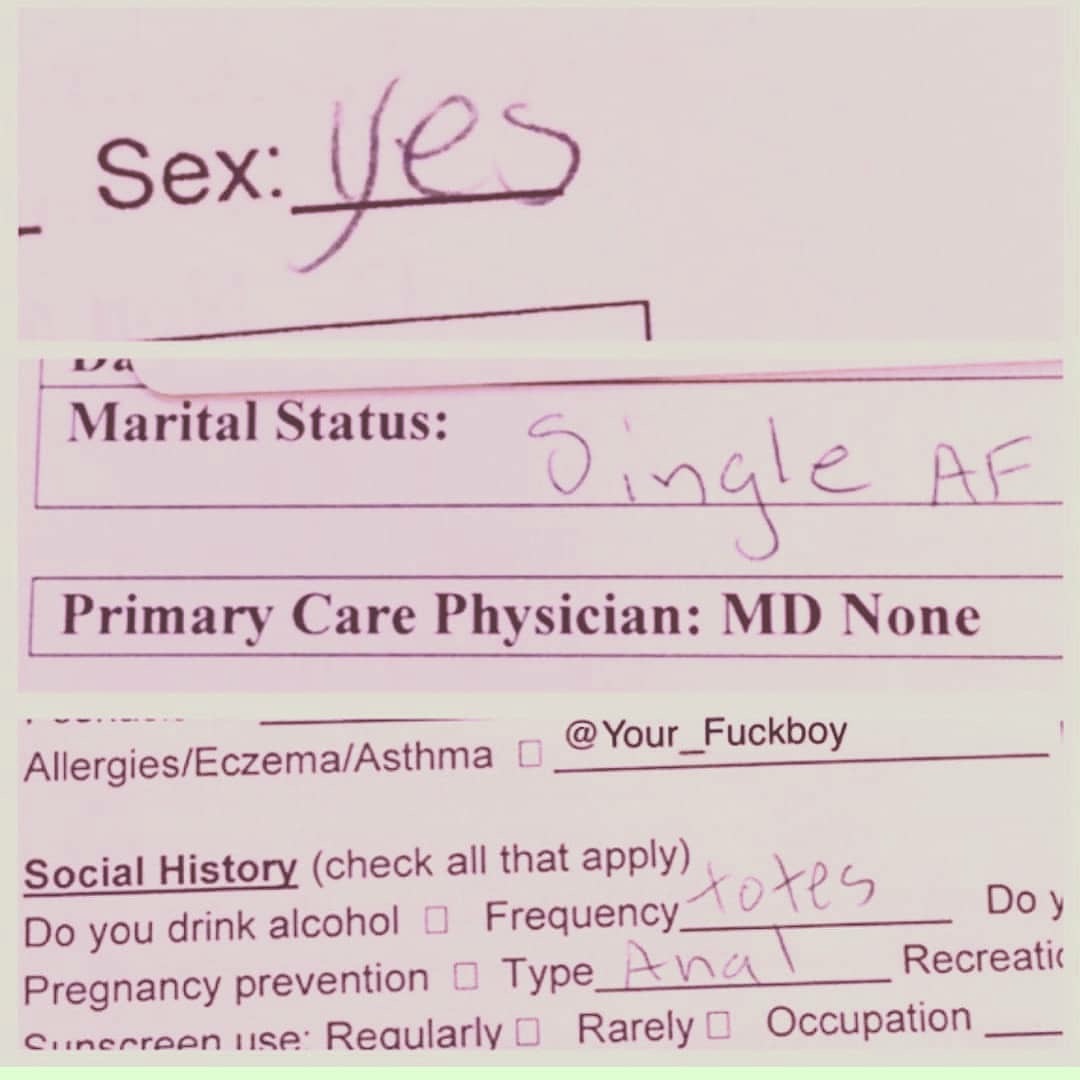 Sex: yes
Marital Status: Single AF
Primary Care Physician: MD None
@Your_Fuckboy
Allergies/Eczema/Asthma □
Social History (check all that apply)
Do you drink alcohol □ Frequency totes Do y
Pregnancy prevention □ Type Anal Recreatic
Sunscreen use: Regularly □ Rarely □ Occupation